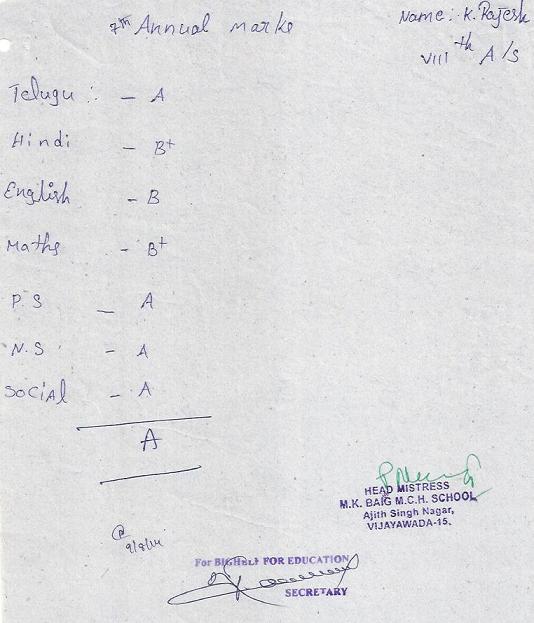 7th Annual marks
Name: K. Rajesh
VIIIth A/S
Telugu : - A
Hindi - B+
English - B
Maths - B+
P.S - A
N.S - A
Social - A
A
9/8/14
HEAD MISTRESS
M.K. BAIG M.C.H. SCHOOL
Ajith Singh Nagar,
VIJAYAWADA-15.
For BIGHELP FOR EDUCATION
SECRETARY